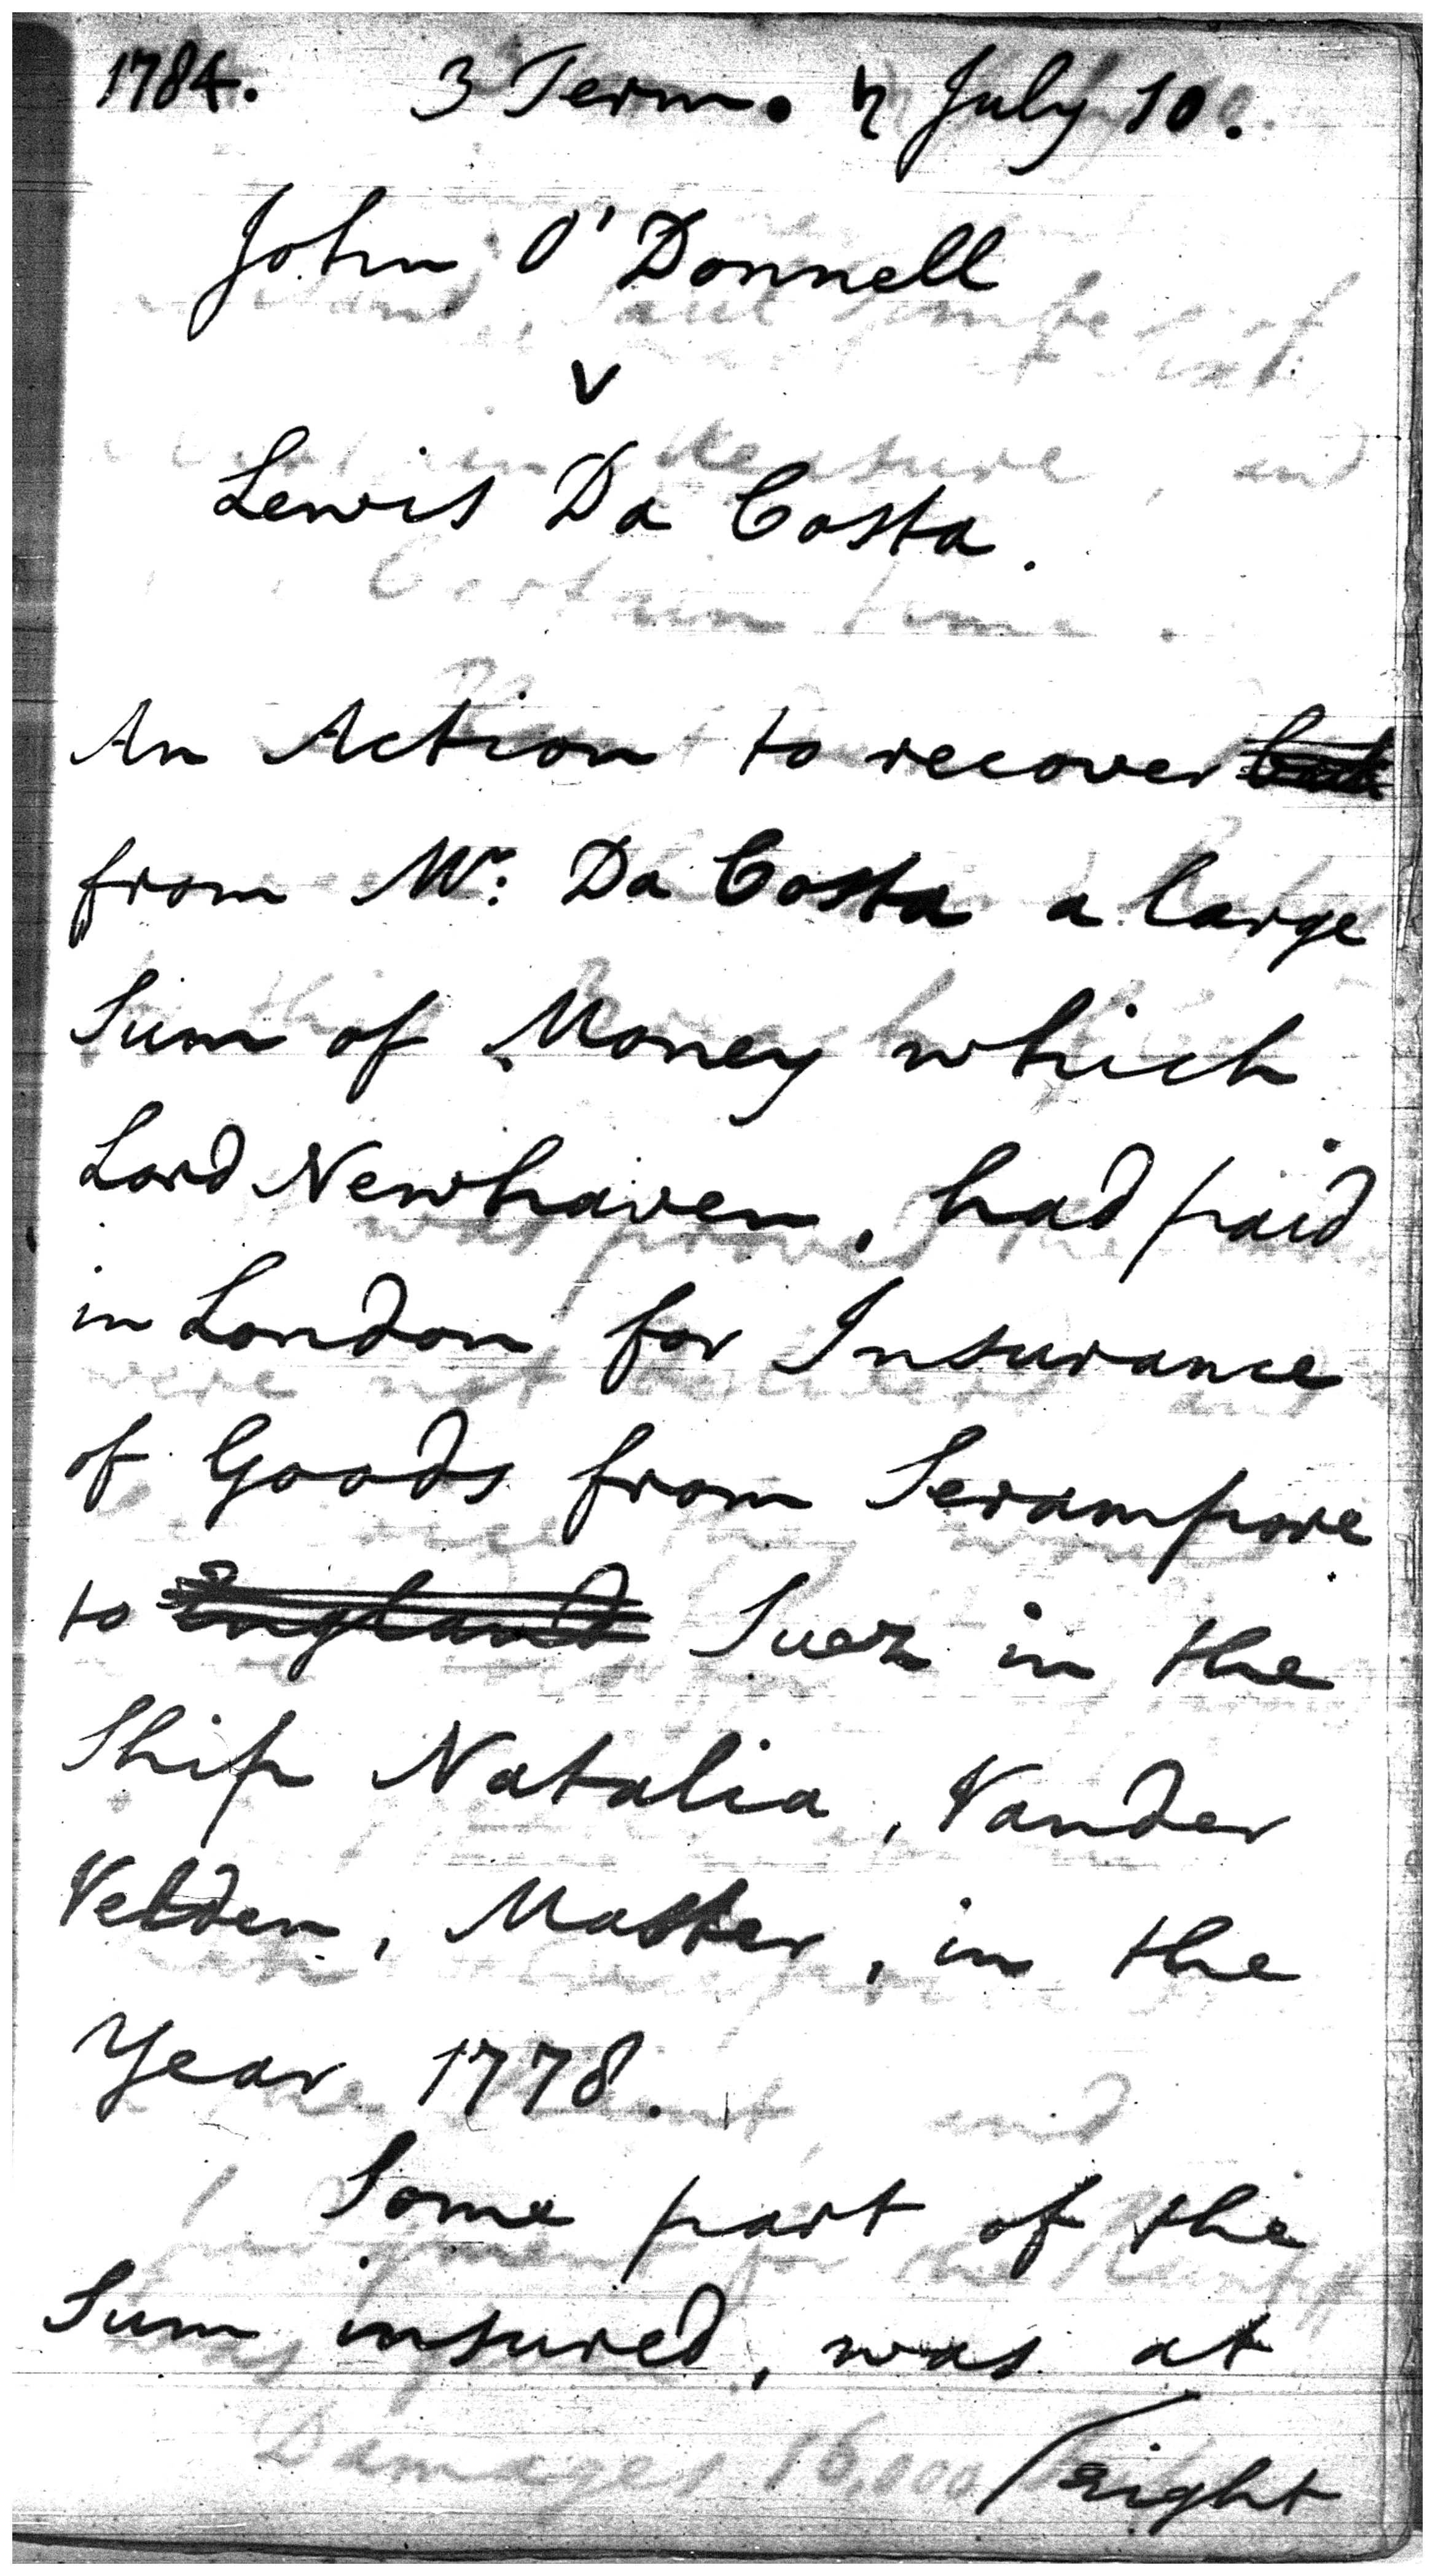 1784. 3 Term. ♄ July 10.
John O'Donnell
v
Lewis Da Costa.
An Action to recover
from Mr: Da Costa a large
Sum of Money which
Lord Newhaven, had paid
in London for Insurance
of Goods from Serampore
to England Suez in the
Ship Natalia, Vander
Velden, Master, in the
Year 1778.
Some part of the
Sum insured, was at
eight